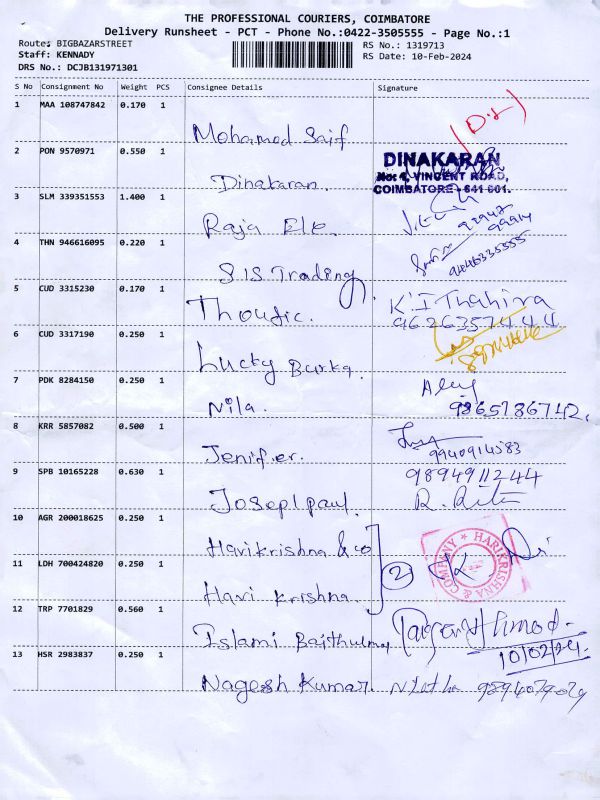 THE PROFESSIONAL COURIERS, COIMBATORE
Delivery Runsheet - PCT - Phone No.:0422-3505555 - Page No.:1
Route: BIGBAZARSTREET
RS No.: 1319713
Staff: KENNADY
RS Date: 10-Feb-2024
DRS No.: DCJB131971301
S No Consignment No Weight PCS Consignee Details Signature
1 MAA 108747842 0.170 1
Mohamed Saif
2 PON 9570971 0.550 1
DINAKARAN
No: 4, VINCENT ROAD,
COIMBATORE - 641 001.
Dinakaran.
3 SLM 339351553 1.400 1
Raja Ele.
4 THN 946616095 0.220 1
SIS Trading
9446335555
5 CUD 3315230 0.170 1
Thoufic. K.I Thahira
9626357444
6 CUD 3317190 0.250 1
Lucky Burka.
7 PDK 8284150 0.250 1
Nila. 9865786742.
8 KRR 5857082 0.500 1
Jenifer.
9 SPB 10165228 0.630 1
9894911244
Joseplpaul.
10 AGR 200018625 0.250 1
Harikrishna & co
HARIKRISHNA & COMPANY
11 LDH 700424820 0.250 1
2
Hari Krishna.
12 TRP 7701829 0.560 1
Islami Baithulmal
10/02/24.
13 HSR 2983837 0.250 1
Nagesh Kumar. 9894079029